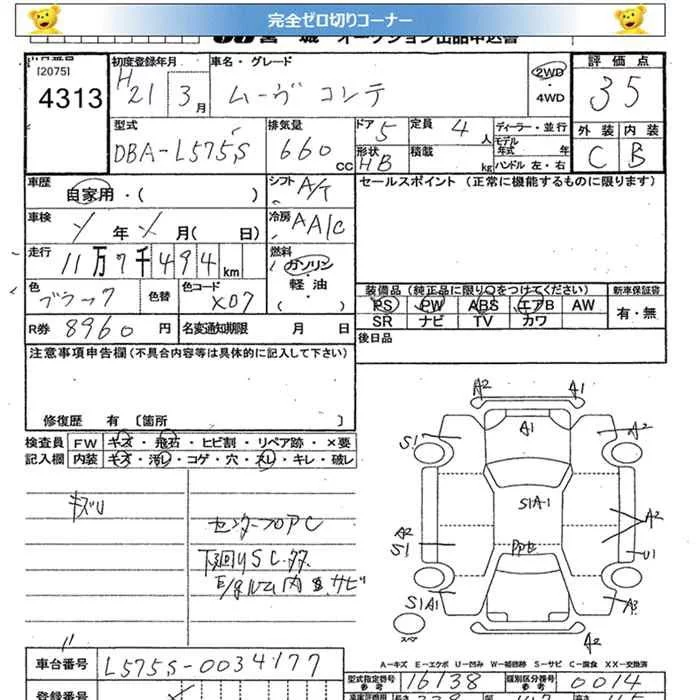 完全ゼロ切りコーナー
宮城 オークション出品申込書
[2075]
4313
初度登録年月
H21 3月
車名・グレード
ムーヴ コンテ
2WD
・
4WD
評価点
35
型式
DBA-L575S
排気量
660cc
ドア 5
定員 4人
形状 HB
積載 kg
ディーラー・並行
モデル年式 年
ハンドル 左・右
外装 内装
C B
車歴
自家用・( )
シフト A/T
セールスポイント (正常に機能するものに限ります)
車検
年 月( 日)
冷房 AAC
走行
11万7千494km
燃料
ガソリン
・
軽油
( )
色
ブラック
色替
色コード
X07
装備品(純正品に限り○をつけてください)
新車保証書
PS PW ABS エアB AW
SR ナビ TV カワ
有・無
R券 8960円
名変通知期限 月 日
後日品
注意事項申告欄(不具合内容等は具体的に記入して下さい)
修復歴 有 〔箇所 〕
検査員 FW キズ・飛石・ヒビ割・リペア跡・×要
記入欄 内装 キズ・汚レ・コゲ・穴・スレ・キレ・破レ
キズU
センターフロアC
下回りSC
E/gルーム内 サビ
A2 A1
S1 A1 A2
S1A1
A2 A2
S1 U1
S1A1 A3
スペア
A2
A－キズ E－エクボ U－凹み W－補修跡 S－サビ C－腐食 XX－交換済
車台番号 L575S-0034177
型式指定番号 16138
参考
類別区分番号 0014
参考
登録番号